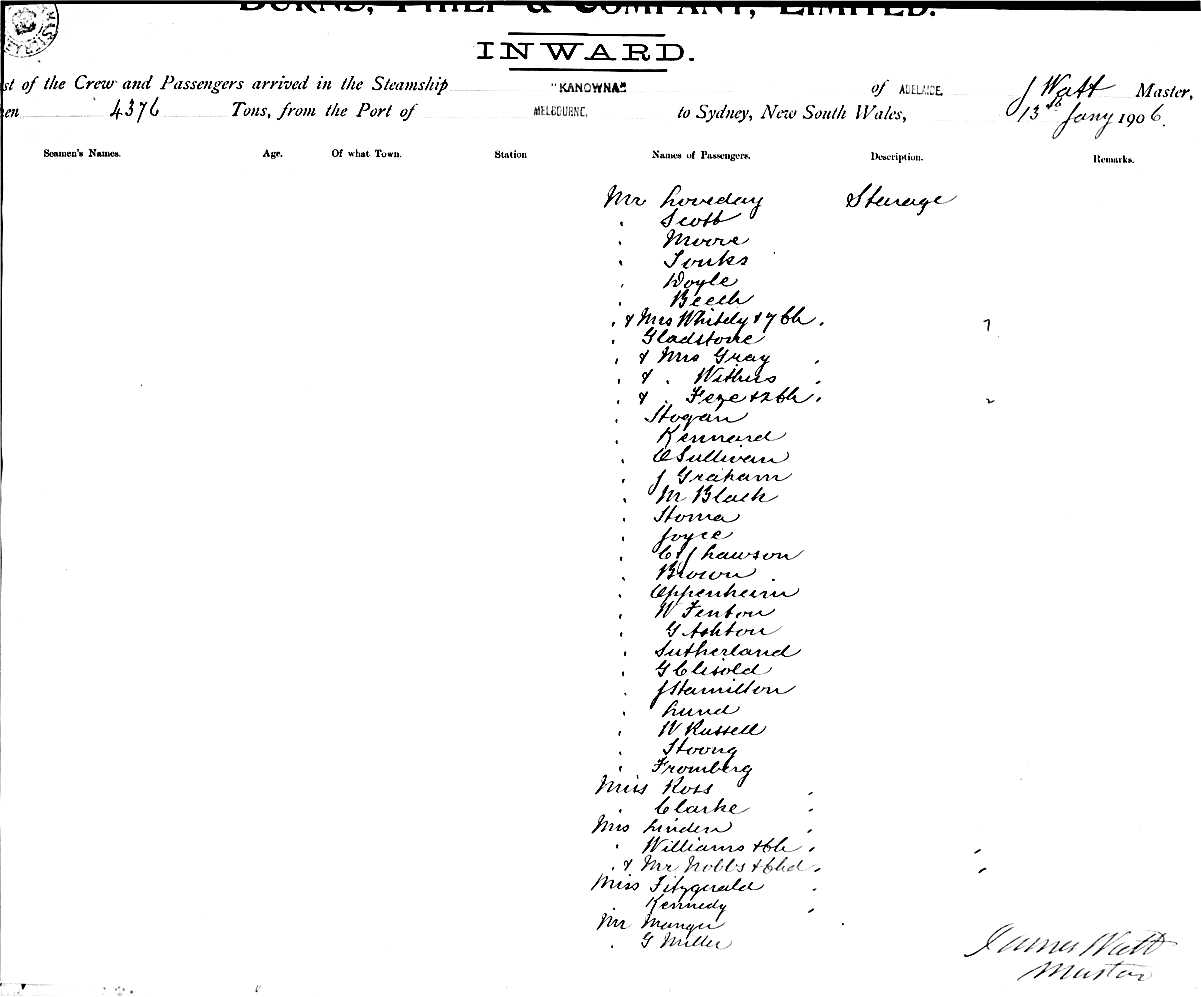 BURNS, PHILP & COMPANY, LIMITED.
INWARD.
st of the Crew and Passengers arrived in the Steamship "KANOWNA" of ADELAIDE. J Watt Master,
en 4376 Tons, from the Port of MELBOURNE, to Sydney, New South Wales, 13th Jany 1906.
Seamen's Names. Age. Of what Town. Station Names of Passengers. Description. Remarks.
Mr Loveday Steerage
" Scott
" Moore
" Tonks
" Doyle
" Beech
" & Mrs Whitely & 7 Ch. 7
" Gladstone
" & Mrs Gray "
" & " Withers "
" & " Feze & 2 Ch. " 2
" Hogan
" Kennard
" O Sullivan
" J Graham
" M Black
" Homa
" Joyce
" C J Lawson
" Brown
" Oppenheim
" W Fenton
" G Ashton
" Sutherland
" G Clisold
" J Hamilton
" Lund
" W Russell
" Hoong
" Fromberg
Miss Ross "
" Clarke "
Mrs Linden "
" Williams & Ch "
" & Mr Nobbs & Chd "
Miss Fitzgerald "
Kennedy "
Mr Manger
" G Miller
James Watt
Master